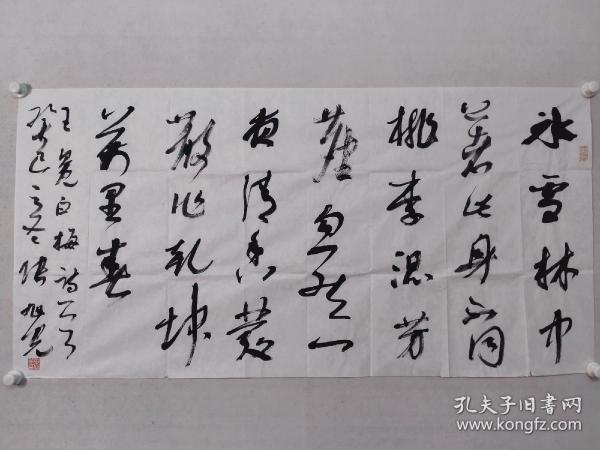 冰雪林中
著此身不同
桃李混芳
尘忽然一
夜清香发
散作乾坤
万里春
王冕白梅诗一首
癸巳之冬张旭光
孔夫子旧书网
www.kongfz.com